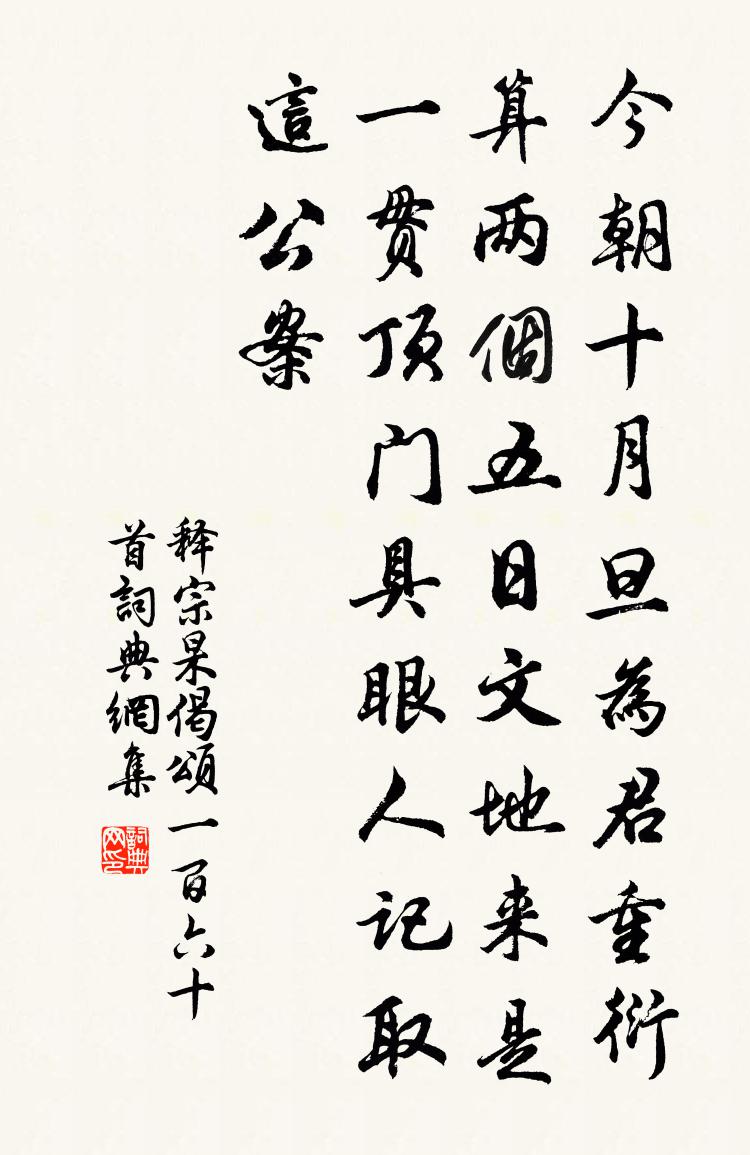 今朝十月旦為君重衍
算两個五日文地来是
一贯顶门具眼人记取
這公案
释宗杲偈頌一百六十
首詞典網集
詞典网印